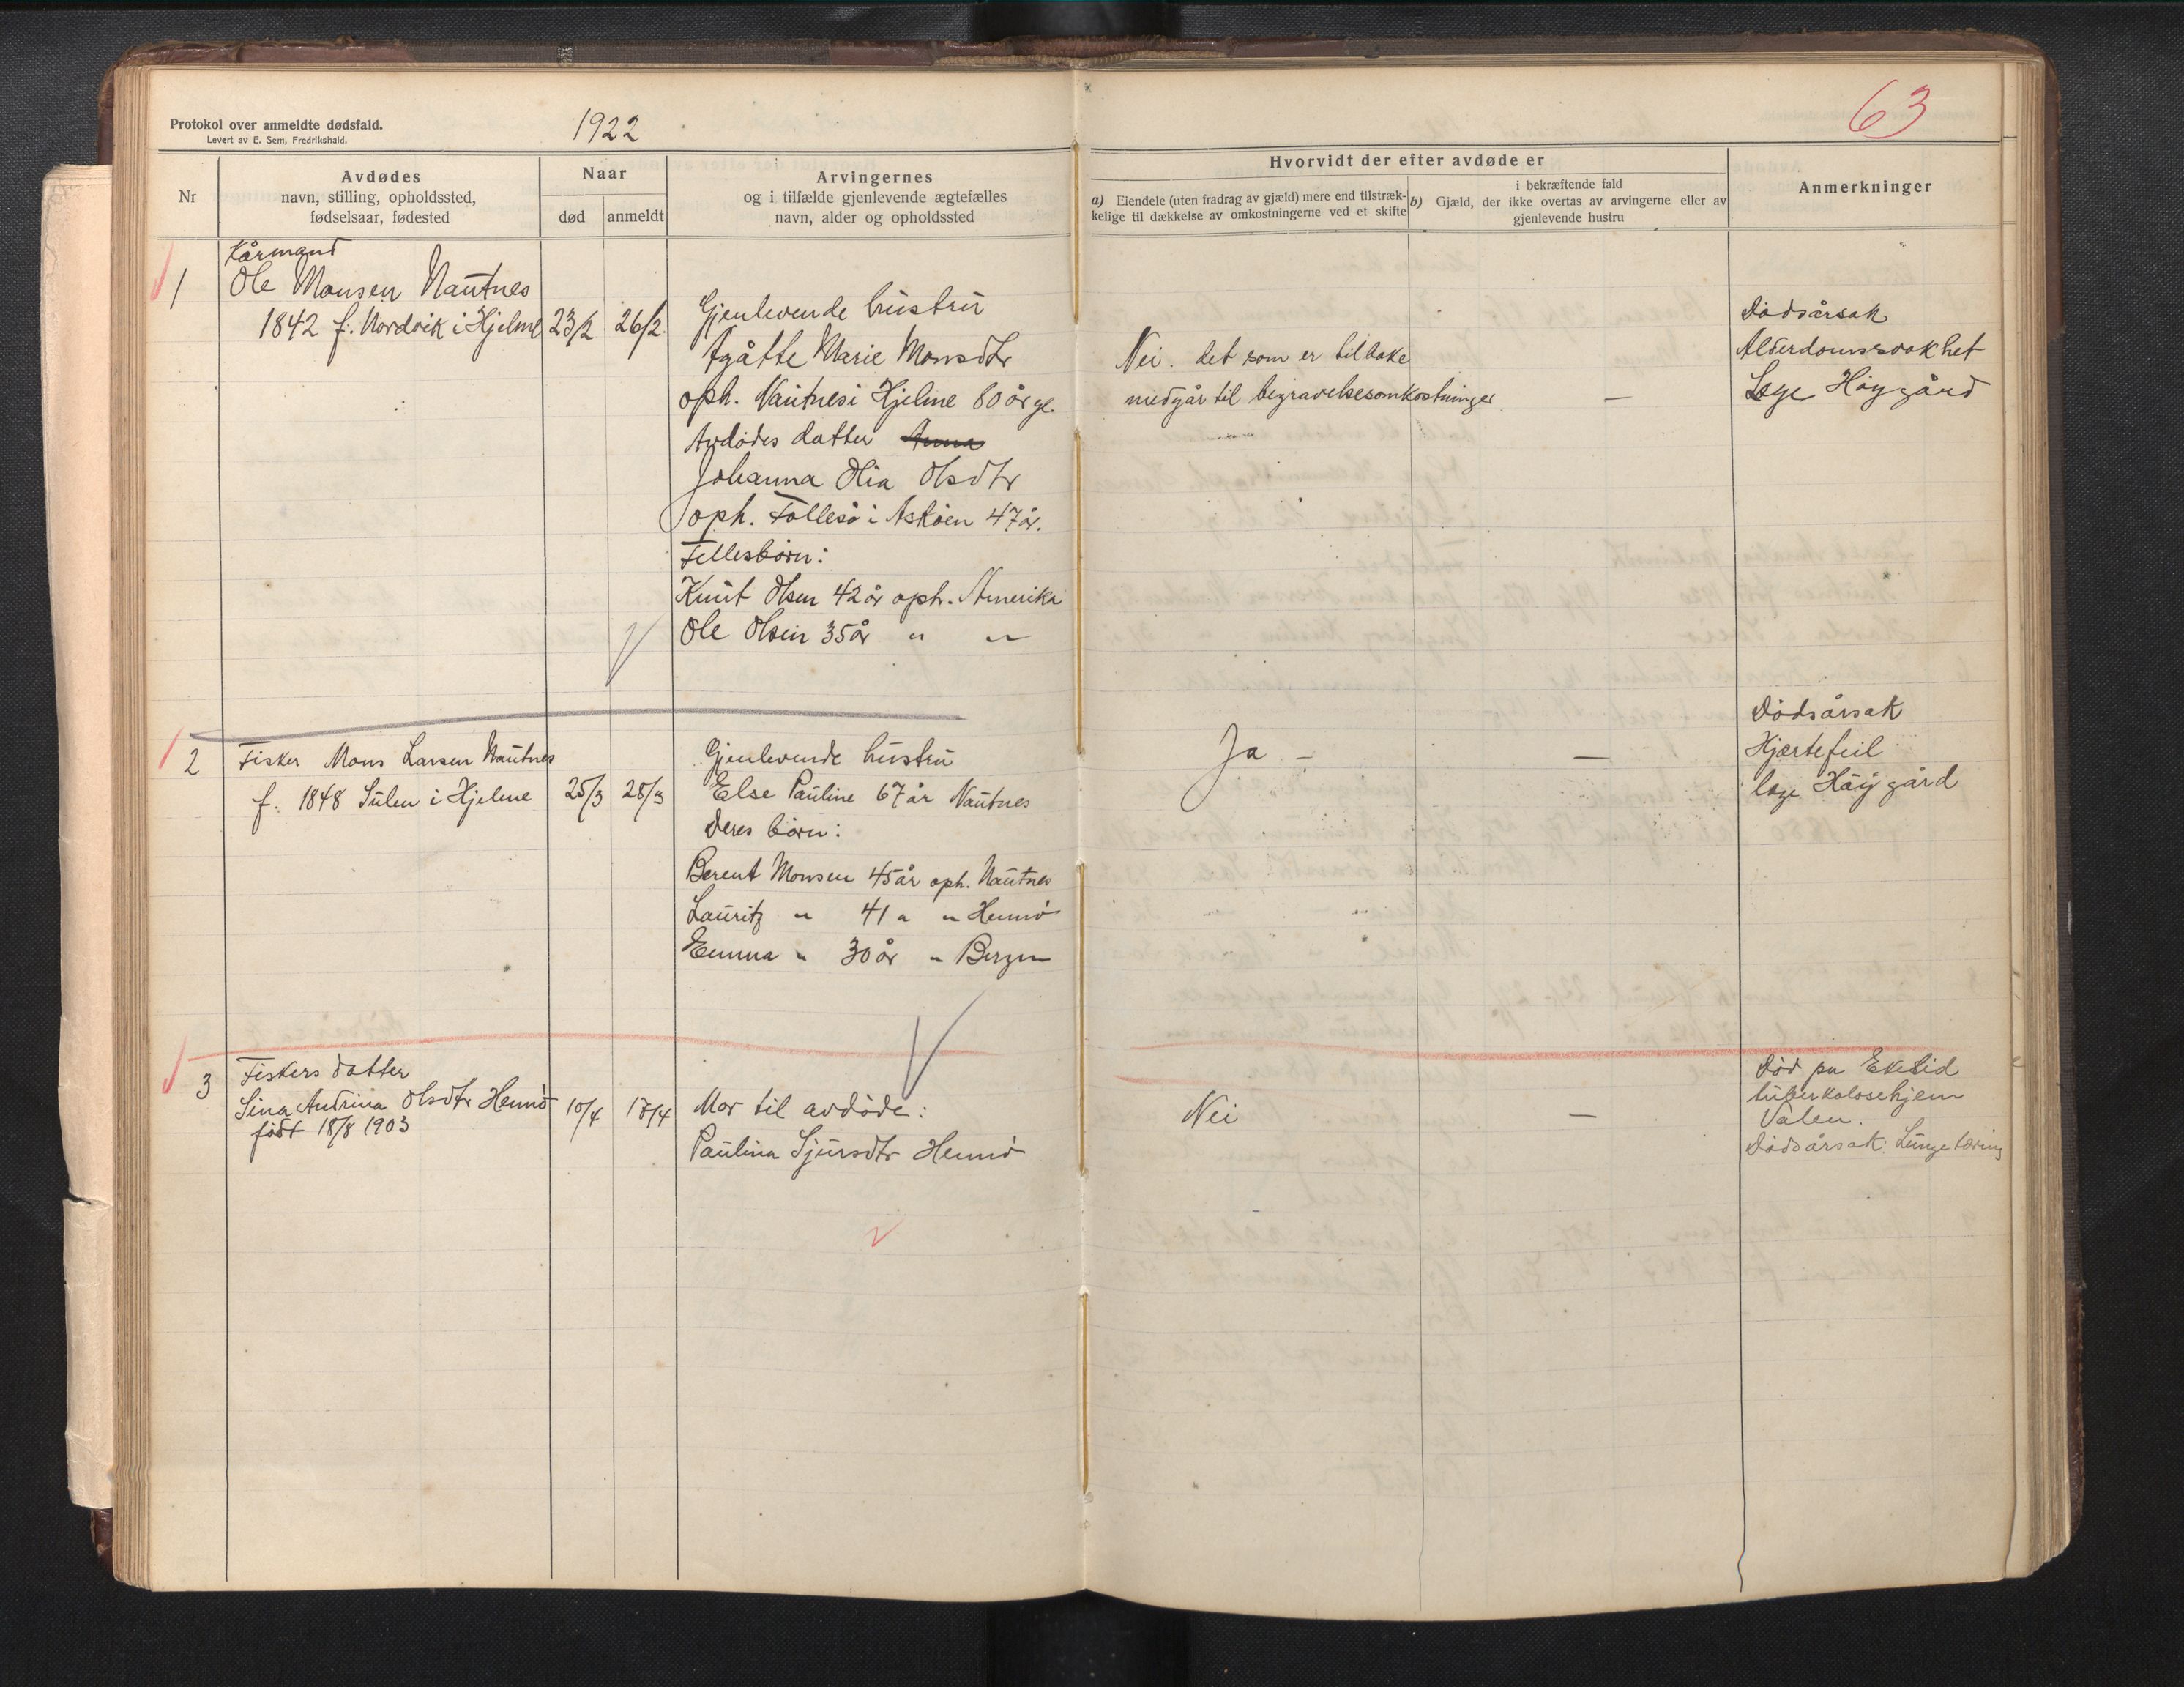 Protokol over anmeldte dødsfald.
Levert av E. Sem, Fredrikshald.
1922
63
Nr
Avdødes
navn, stilling, opholdssted,
fødselsaar, fødested
Naar
død
anmeldt
Arvingernes
og i tilfælde gjenlevende ægtefælles
navn, alder og opholdssted
Hvorvidt der efter avdøde er
a) Eiendele (uten fradrag av gjæld) mere end tilstræk-
kelige til dækkelse av omkostningerne ved et skifte
i bekræftende fald
b) Gjæld, der ikke overtas av arvingerne eller av
gjenlevende hustru
Anmerkninger
1
Kårmand
Ole Monsen Nautnes
1842 f. Nordvik i Hjelme
23/2
26/2
Gjenlevende hustru
Agåtte Marie Monsdtr
oph. Nautnes i Hjelme 80 år gl.
Avdødes datter Anna
Johanna Olia Olsdtr
oph. Follesø i Askøen 47 år.
Fellesbørn:
Knut Olsen 42 år oph. Amerika
Ole Olsen 35 år " "
Nei. det som er tilbake
medgår til begravelsesomkostninger
—
Dødsårsak
Alderdomssvakhet
Læge Høygård
2
Fisker Mons Larsen Nautnes
f. 1848 Sulen i Hjelme
25/3
28/3
Gjenlevende hustru
Else Pauline 67 år Nautnes
Deres børn:
Berent Monsen 45 år oph. Nautnes
Lauritz " 41 " " Hennø
Emma " 30 år " Bergen
Ja —
—
Dødsårsak
Hjærtefeil
læge Høygård
3
Fiskers datter
Sina Andrina Olsdtr Hennø
født 18/8 1903
10/4
17/4
Mor til avdøde:
Paulina Sjursdtr Hennø
Nei
—
Død på Ekelid
tuberkolosehjem
Valen.
Dødsårsak: Lungetæring